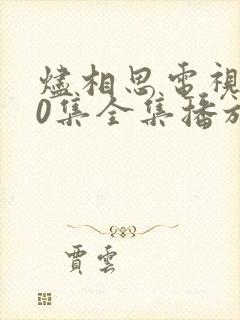 燼相思電視
0集全集播放
賈雲